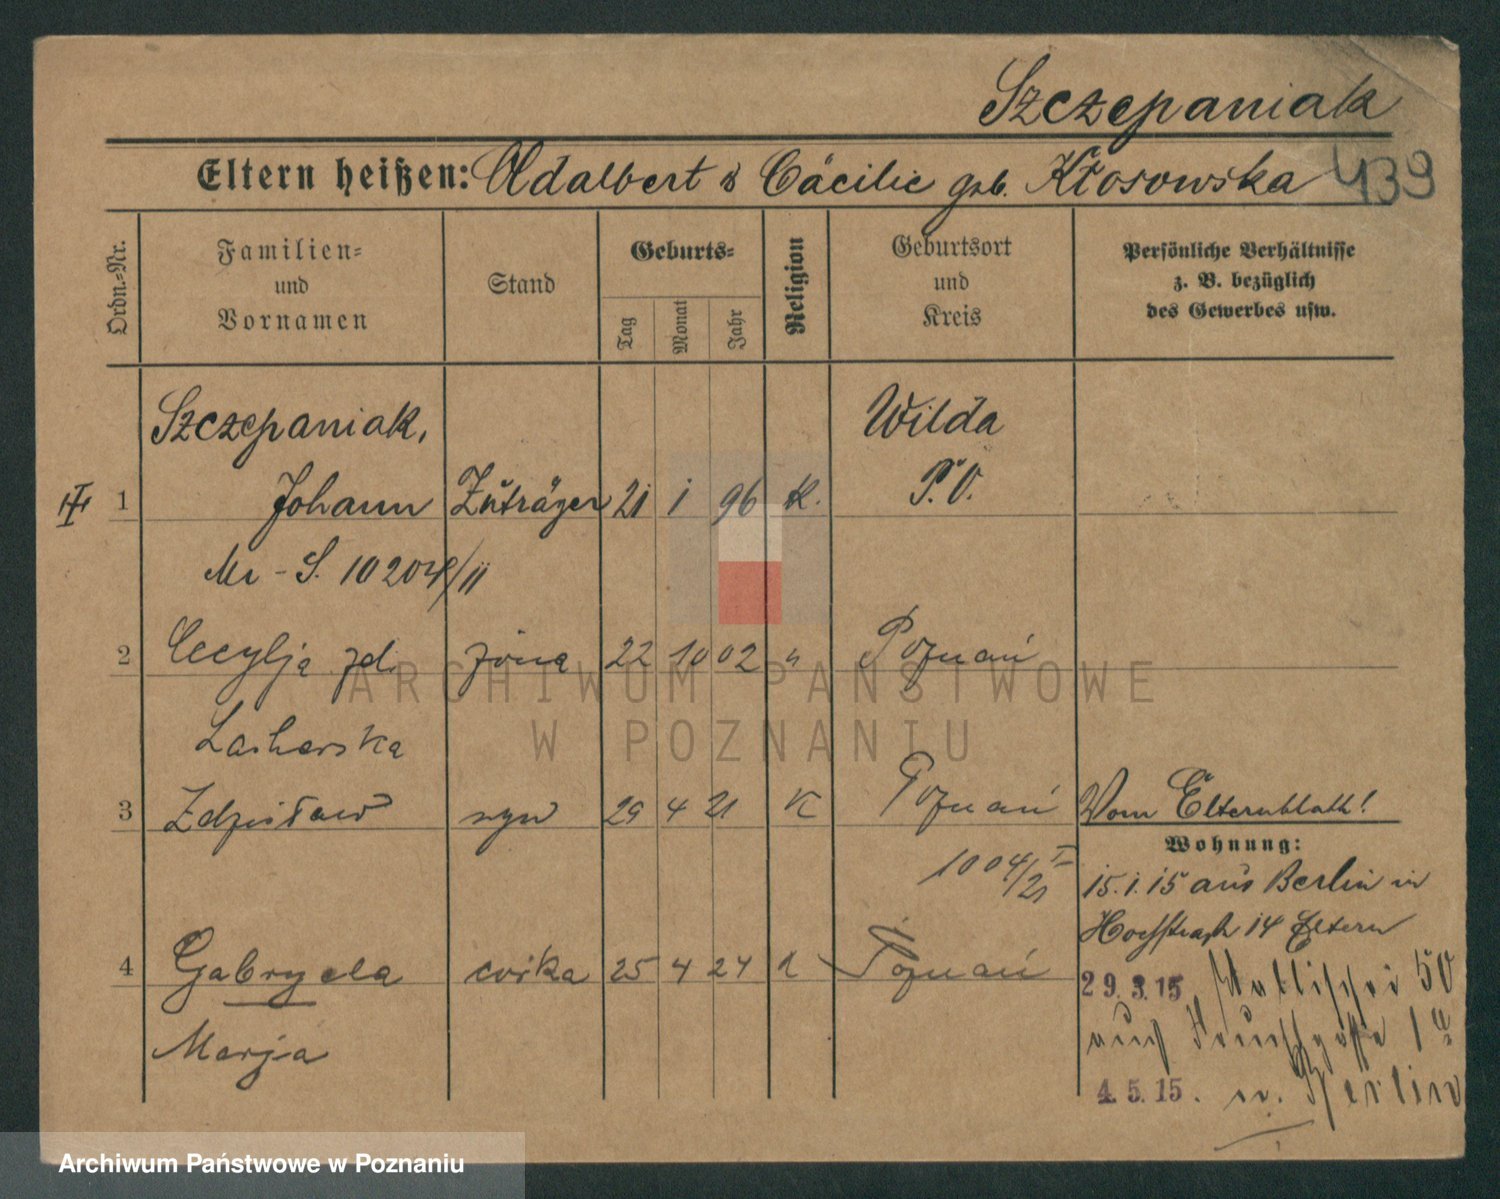 Szczepaniak
Eltern heißen: Adalbert & Cäcilie geb. Kłosowska 439
Ordn.-Nr.
Familien-
und
Vornamen
Stand
Geburts-
Tag
Monat
Jahr
Religion
Geburtsort
und
Kreis
Persönliche Verhältnisse
z. B. bezüglich
des Gewerbes usw.
Szczepaniak, Wilda
1 Johann Zuträger 21 1 96 k. P. O.
S. 10204/II
2 Cecylja zd. żona 22 10 02 " Poznań
3 Zdzisław syn 29 4 21 K Poznań Vom Elternblatt!
Wohnung:
1004/21 I
15.1.15 aus Berlin in
14 Eltern
4 Gabryela córka 25 4 24 k Poznań
29.3.15 50
Marja
4.5.15. n. Berlin
ARCHIWUM PAŃSTWOWE
W POZNANIU
Archiwum Państwowe w Poznaniu